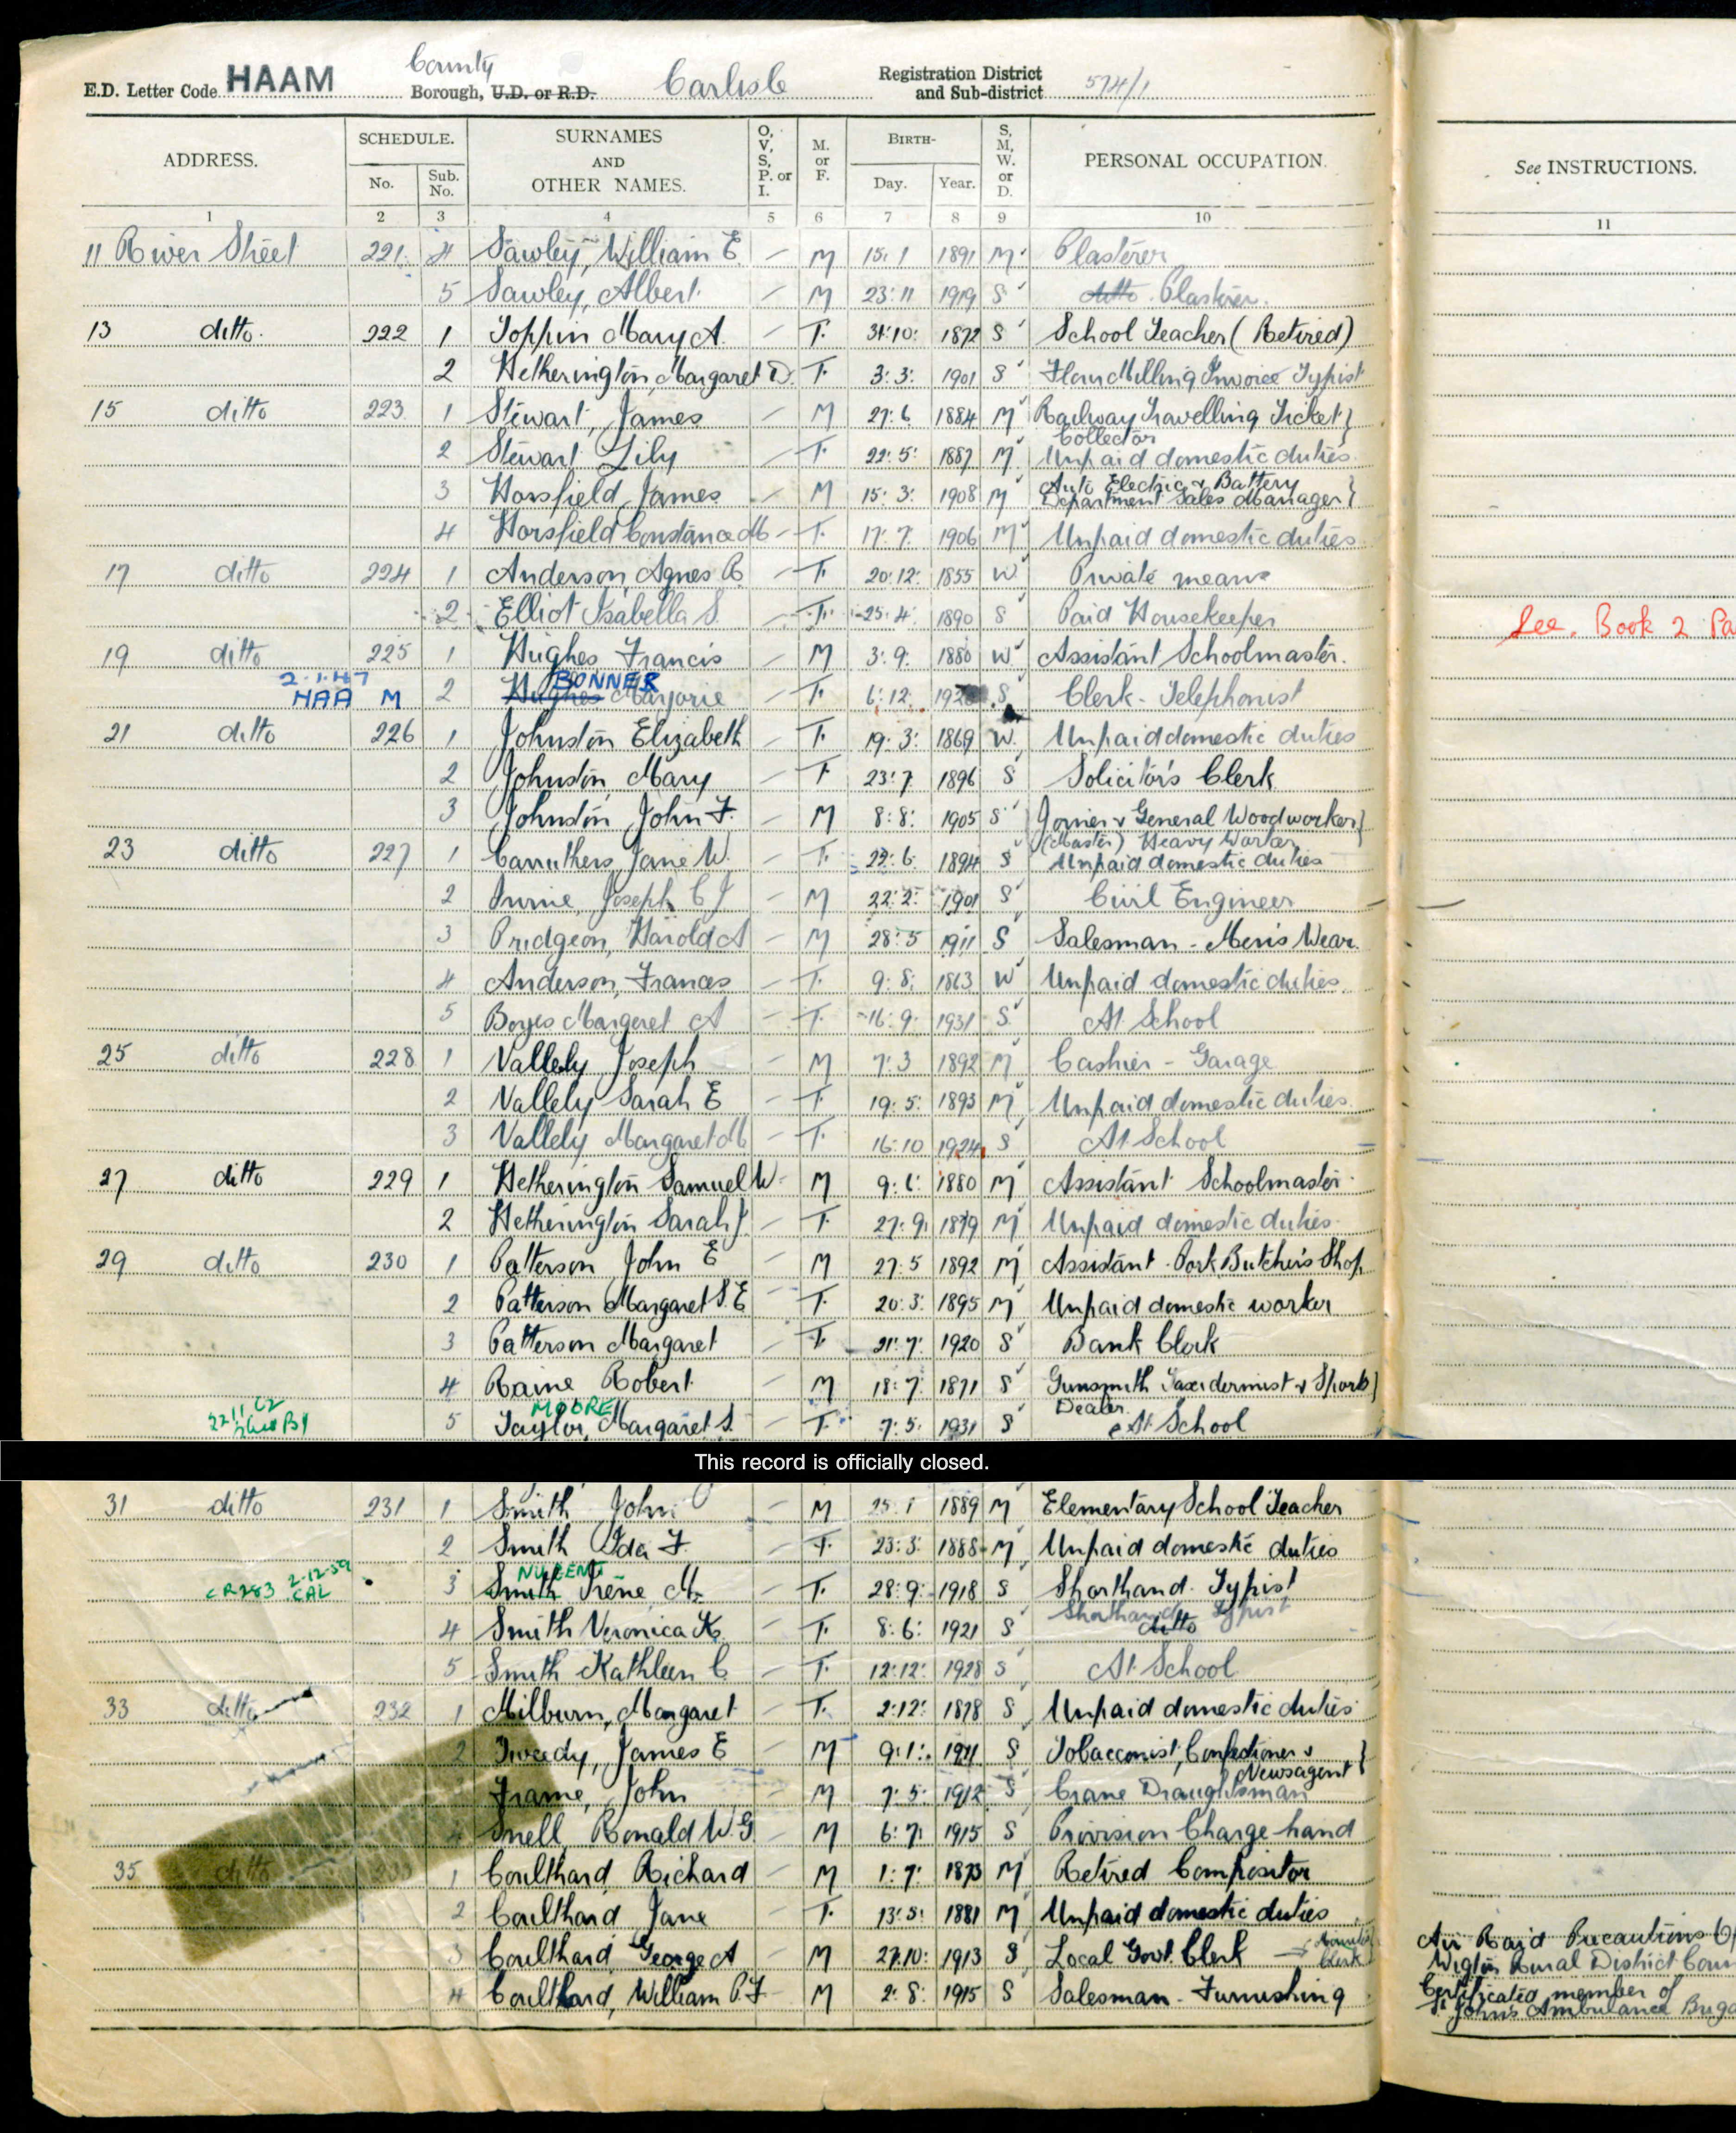 E.D. Letter Code HAAM County Borough, U.D. or R.D. Carlisle Registration District and Sub-district 574/1
ADDRESS. SCHEDULE. No. Sub. No. SURNAMES AND OTHER NAMES. O, V, S, P. or I. M. or F. BIRTH- Day. Year. S, M, W. or D. PERSONAL OCCUPATION. See INSTRUCTIONS.
1 2 3 4 5 6 7 8 9 10 11
11 River Street 221 4 Sawley, William E. — M 15.1 1891 M Plasterer
5 Sawley, Albert — M 23:11 1919 S ditto Plasterer.
13 ditto. 222 1 Toppin Mary A. — F. 31:10: 1872 S School Teacher (Retired)
2 Hetherington, Margaret D. F. 3:3: 1901 S Flour Milling Invoice Typist
15 ditto 223 1 Stewart, James — M 27:6 1884 M Railway Travelling Ticket }
Collector
2 Stewart Lily — F. 22:5: 1887 M Unpaid domestic duties.
3 Horsfield James — M 15:3: 1908 M Auto Electric & Battery
Department Sales Manager }
4 Horsfield Constance M — F. 17:7. 1906 M Unpaid domestic duties
17 ditto 224 1 Anderson, Agnes R — F. 20:12: 1855 W. Private means
2 Elliot Isabella S. — F. 25:4: 1890 S Paid Housekeeper
See. Book 2 Pa
19 ditto 225 1 Hughes Francis — M 3:9. 1880 W Assistant Schoolmaster.
2.1.47 BONNER
HAA M 2 Hughes Marjorie — F. 6:12. S Clerk - Telephonist
21 ditto 226 1 Johnston Elizabeth — F. 19:3: 1869 W. Unpaid domestic duties
2 Johnston, Mary — F 23:7 1896 S Solicitor's Clerk
3 Johnston John F. — M 8:8: 1905 S Joiner & General Woodworker }
(Master) Heavy Worker
23 ditto 227 1 Carruthers, Jane W. — F. 22:6. 1894 S Unpaid domestic duties
2 Irvine, Joseph C J — M 22:2: 1901 S Civil Engineer
3 Pridgeon, Harold A — M 28:5 1911 S Salesman - Men's Wear.
4 Anderson, Frances — F. 9:8: 1863 W Unpaid domestic duties.
5 Boyes Margaret A — F. 16:9: 1931 S At School
25 ditto 228 1 Vallely Joseph — M 7:3 1892 M Cashier - Garage
2 Vallely Sarah E — F 19:5: 1893 M Unpaid domestic duties.
3 Vallely Margaret M — F. 16:10 1924 S At School
27 ditto 229 1 Hetherington Samuel W. M 9:6: 1880 M Assistant Schoolmaster.
2 Hetherington Sarah J. — F. 27:9. 1879 M Unpaid domestic duties.
29 ditto 230 1 Patterson John E — M 27:5 1892 M Assistant. Pork Butcher's Shop
2 Patterson Margaret S.E F. 20:3: 1895 M Unpaid domestic worker
3 Patterson Margaret — F. 21:7: 1920 S Bank Clerk
4 Raine Robert — M 18:7 1871 S Gunsmith Taxidermist & Sports }
Dealer.
MOORE
5 Taylor, Margaret S. — F. 7:5: 1931 S At School
This record is officially closed.
31 ditto 231 1 Smith John — M 25:1 1889 M Elementary School Teacher
2 Smith Ida F. — F. 23:3: 1888 M Unpaid domestic duties
NUGENT
CR283 2-12-59 CAL 3 Smith Irene M. — F. 28:9: 1918 S Shorthand. Typist
Shorthand Typist
4 Smith Veronica K. — F. 8:6: 1921 S ditto
5 Smith Kathleen C — F. 12:12: 1928 S At School
33 ditto 232 1 Milburn, Margaret — F. 2:12: 1878 S Unpaid domestic duties
2 Tweedy, James E — M 9:1: 1911 S Tobacconist, Confectioner & }
Newsagent
Frame, John — M 7:5: 1912 S Crane Draughtsman
4 Snell Ronald W.G — M 6:7: 1915 S Provision Charge hand
35 ditto 1 Coulthard Richard — M 1:7: 1873 M Retired Compositor
2 Coulthard Jane — F. 13:5: 1881 M Unpaid domestic duties
3 Coulthard, George A — M 27:10: 1913 S Local Govt. Clerk Clerk
Air Raid Precautions
Wigton Rural District Coun
4 Coulthard, William P.F — M 2:8: 1915 S Salesman - Furnishing
Certificated member of
St John's Ambulance Briga